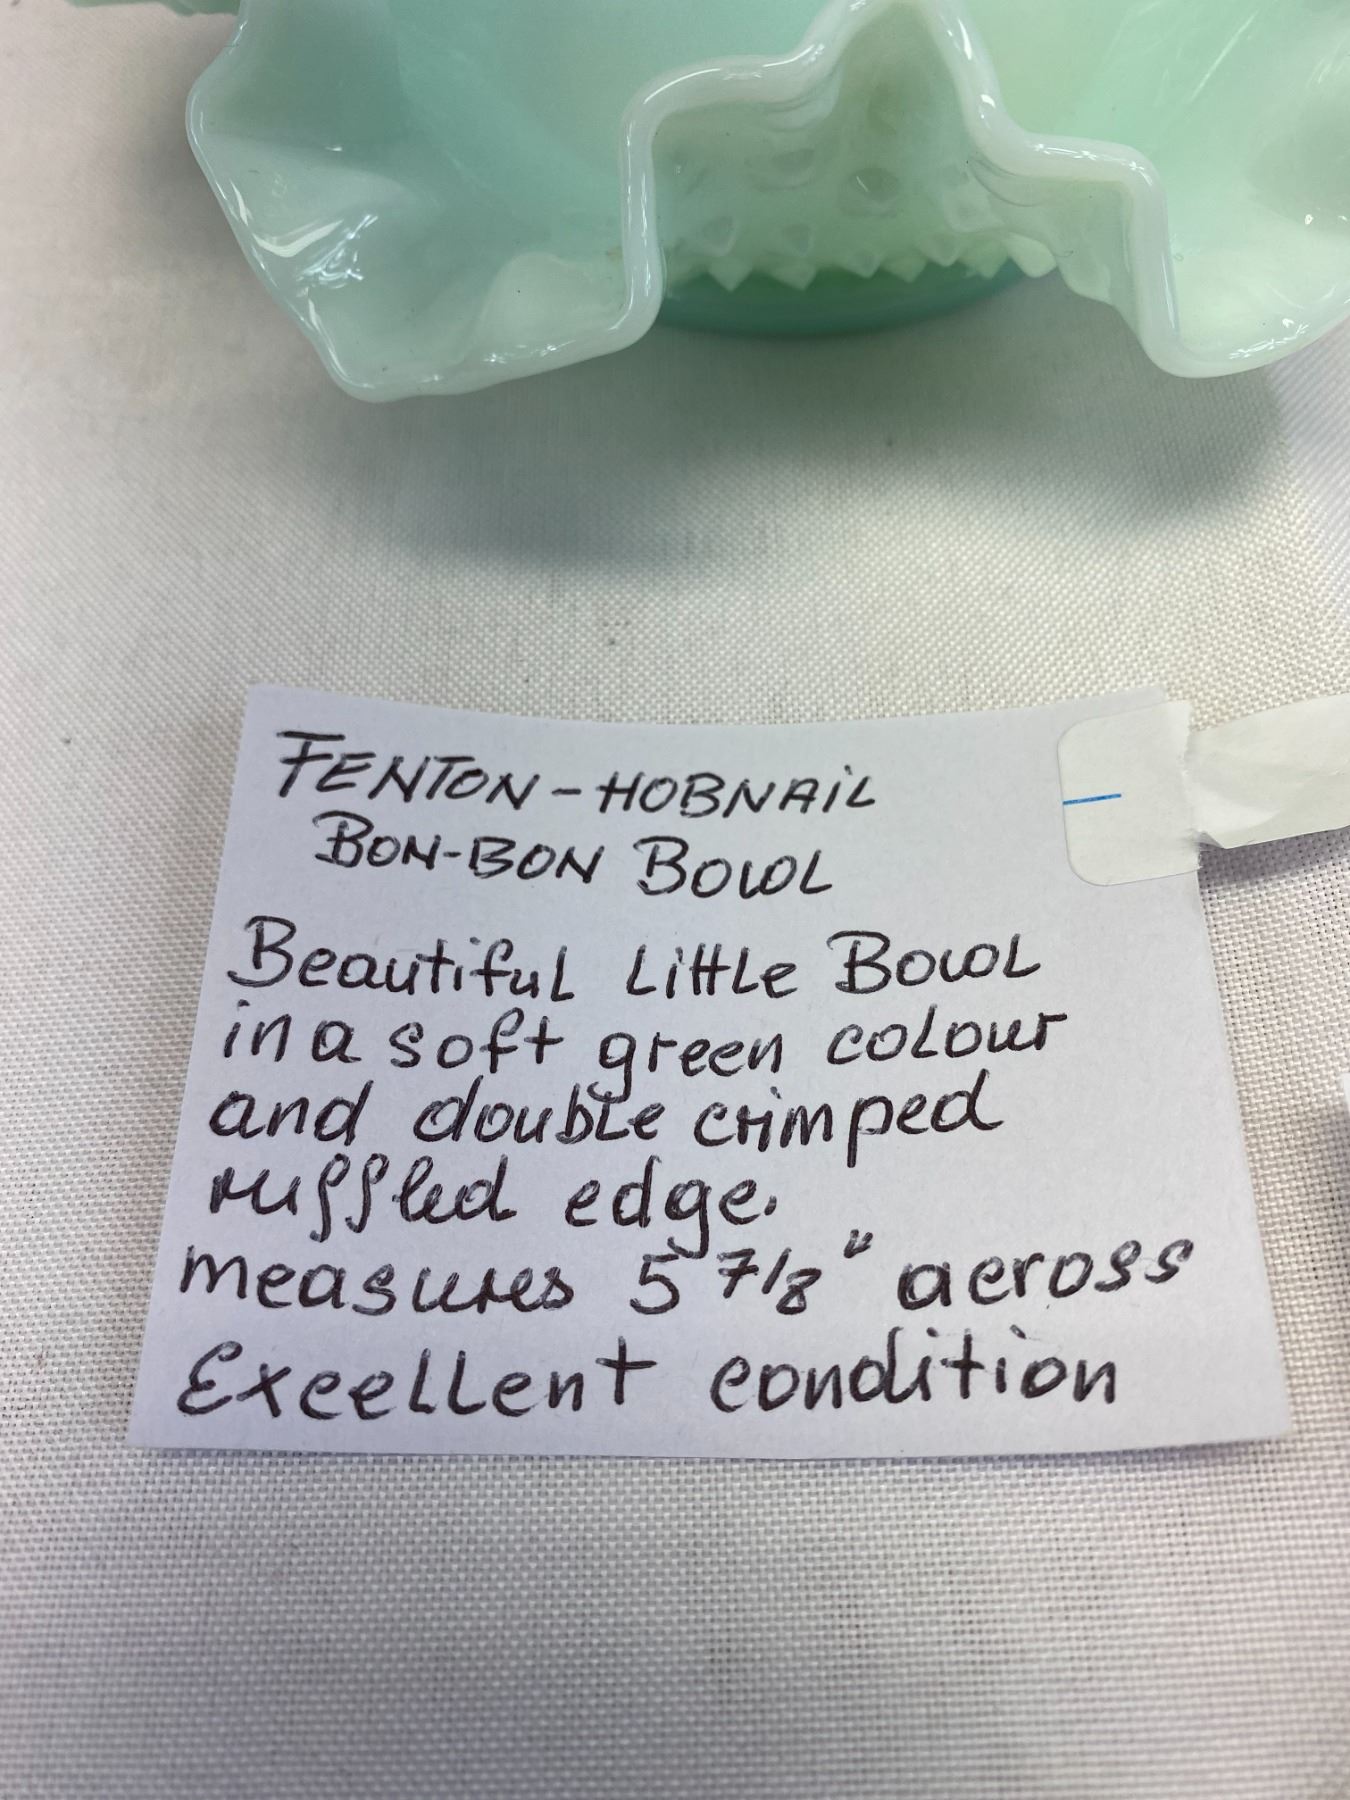 FENTON - HOBNAiL
BON-BON BOWL
Beautiful Little Bowl
in a soft green colour
and double crimped
ruffled edge.
measures 5 7/8" across
Excellent condition